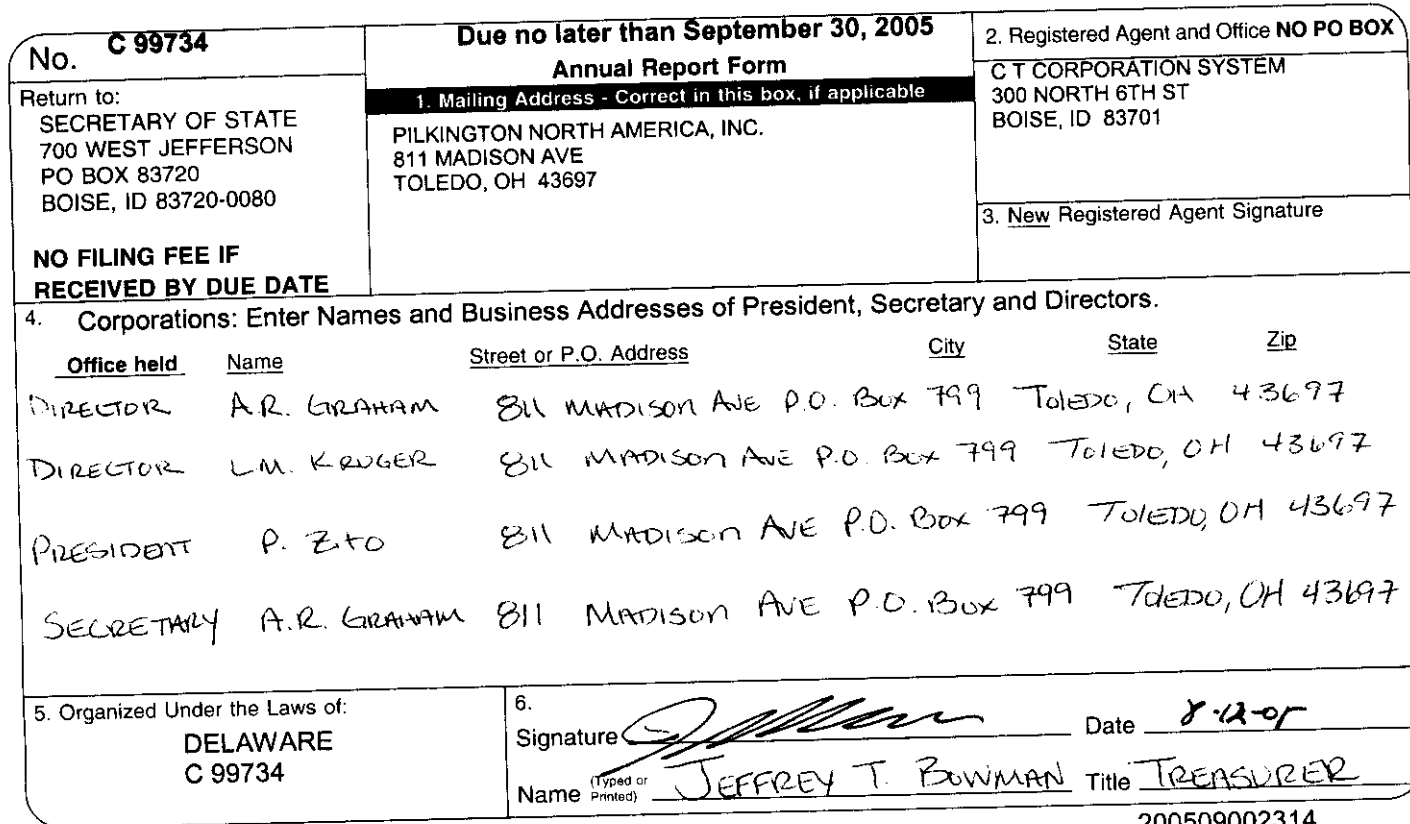 No. C 99734
Return to:
SECRETARY OF STATE
700 WEST JEFFERSON
PO BOX 83720
BOISE, ID 83720-0080
NO FILING FEE IF
RECEIVED BY DUE DATE
Due no later than September 30, 2005
Annual Report Form
1. Mailing Address - Correct in this box, if applicable
PILKINGTON NORTH AMERICA, INC.
811 MADISON AVE
TOLEDO, OH 43697
2. Registered Agent and Office NO PO BOX
C T CORPORATION SYSTEM
300 NORTH 6TH ST
BOISE, ID 83701
3. New Registered Agent Signature
4. Corporations: Enter Names and Business Addresses of President, Secretary and Directors.
Office held Name Street or P.O. Address City State Zip
DIRECTOR A.R. GRAHAM 811 MADISON AVE P.O. Box 799 Toledo, OH 43697
DIRECTOR L.M. KRUGER 811 MADISON AVE P.O. Box 799 Toledo, OH 43697
PRESIDENT P. Zito 811 MADISON AVE P.O. Box 799 Toledo, OH 43697
SECRETARY A.R. GRAHAM 811 MADISON AVE P.O. Box 799 Toledo, OH 43697
5. Organized Under the Laws of:
DELAWARE
C 99734
6.
Signature Date 8-12-05
Name (Typed or Printed) JEFFREY T. BOWMAN Title TREASURER
200509002314